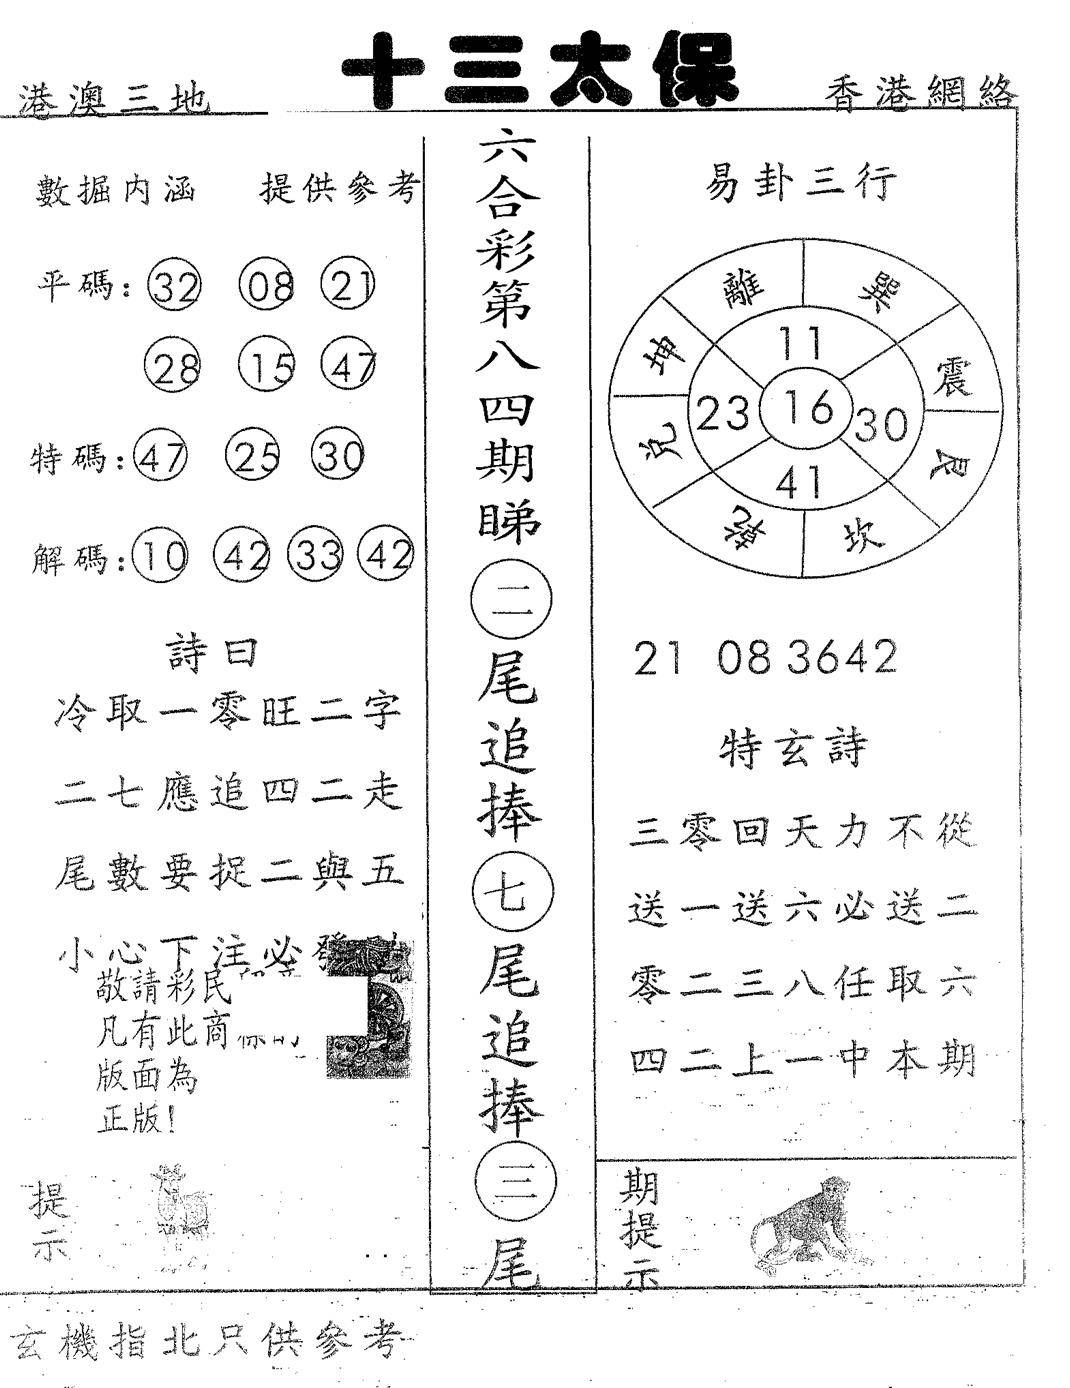 十三太保
港澳三地
香港網絡
數掘内涵 提供參考
平碼: 32 08 21
28 15 47
特碼: 47 25 30
解碼: 10 42 33 42
詩曰
冷取一零旺二字
二七應追四二走
尾數要捉二與五
小心下注必發
敬請彩民
凡有此商
版面為
正版!
提示
六合彩第八四期睇二尾追捧七尾追捧三尾
易卦三行
離 巽
坤 11 震
23 16 30
兑 41 艮
乾 坎
21 08 36 42
特玄詩
三零回天力不從
送一送六必送二
零二三八任取六
四二上一中本期
期提示
玄機指北只供參考